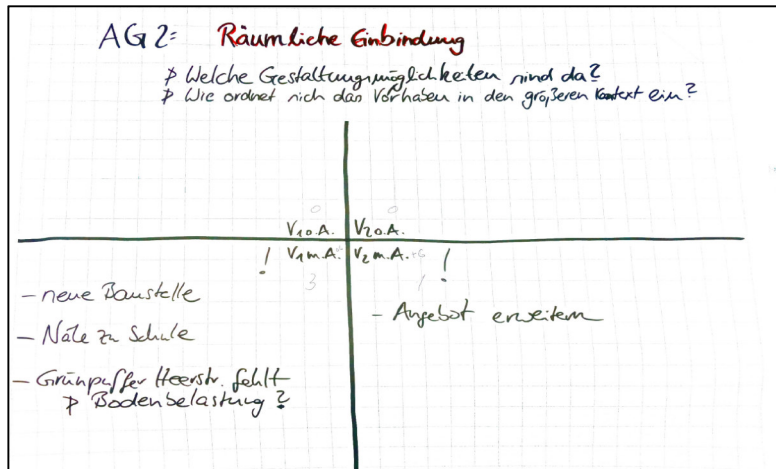 AG2: Räumliche Einbindung
Welche Gestaltungsmöglichkeiten sind da?
Wie ordnet sich das Vorhaben in den größeren Kontext ein?
0 0
V1 o.A. V2 o.A.
! V1 m.A. V2 m.A. +6 !
3 1
- neue Baustelle
- Angebot erweitern
- Nähe zu Schule
- Grünpuffer Heerstr. fehlt
Bodenbelastung?